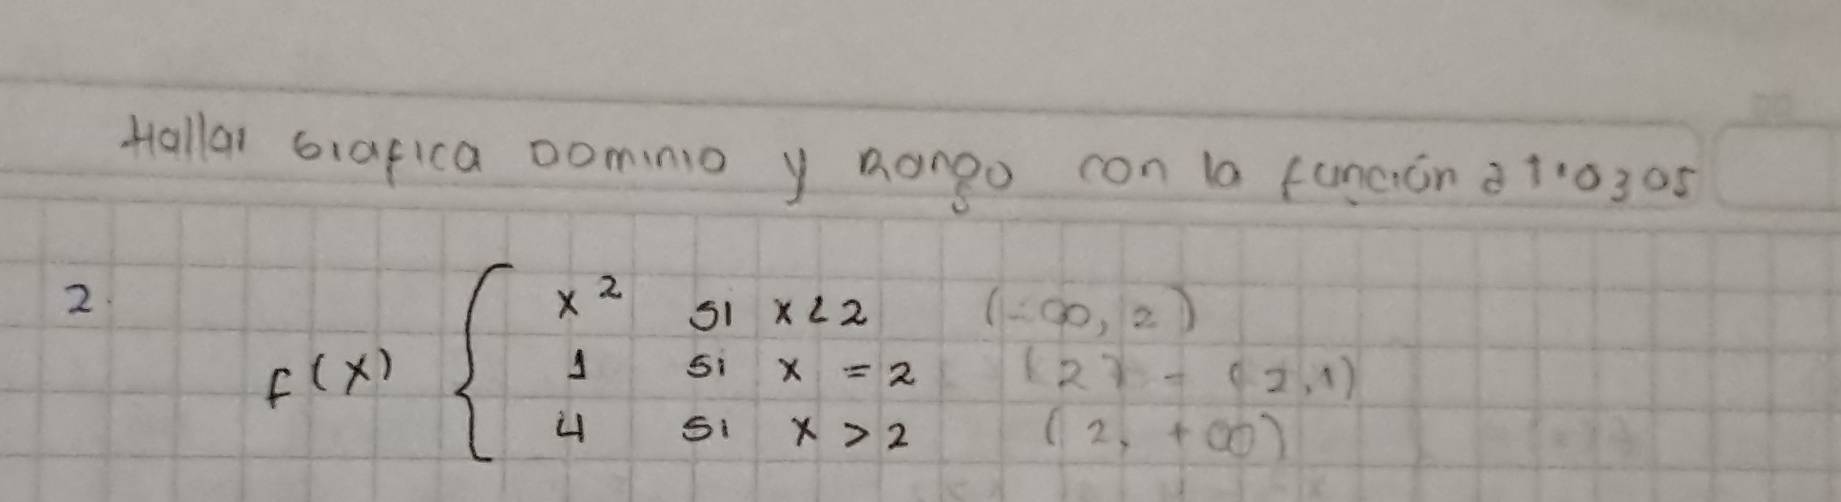 Hallar Grafica Dominio y Rango con la función a trozos
2. x² si x < 2 (-∞, 2)
f(x) { 1 si x = 2 {2} - (2,1)
4 si x > 2 (2, +∞)